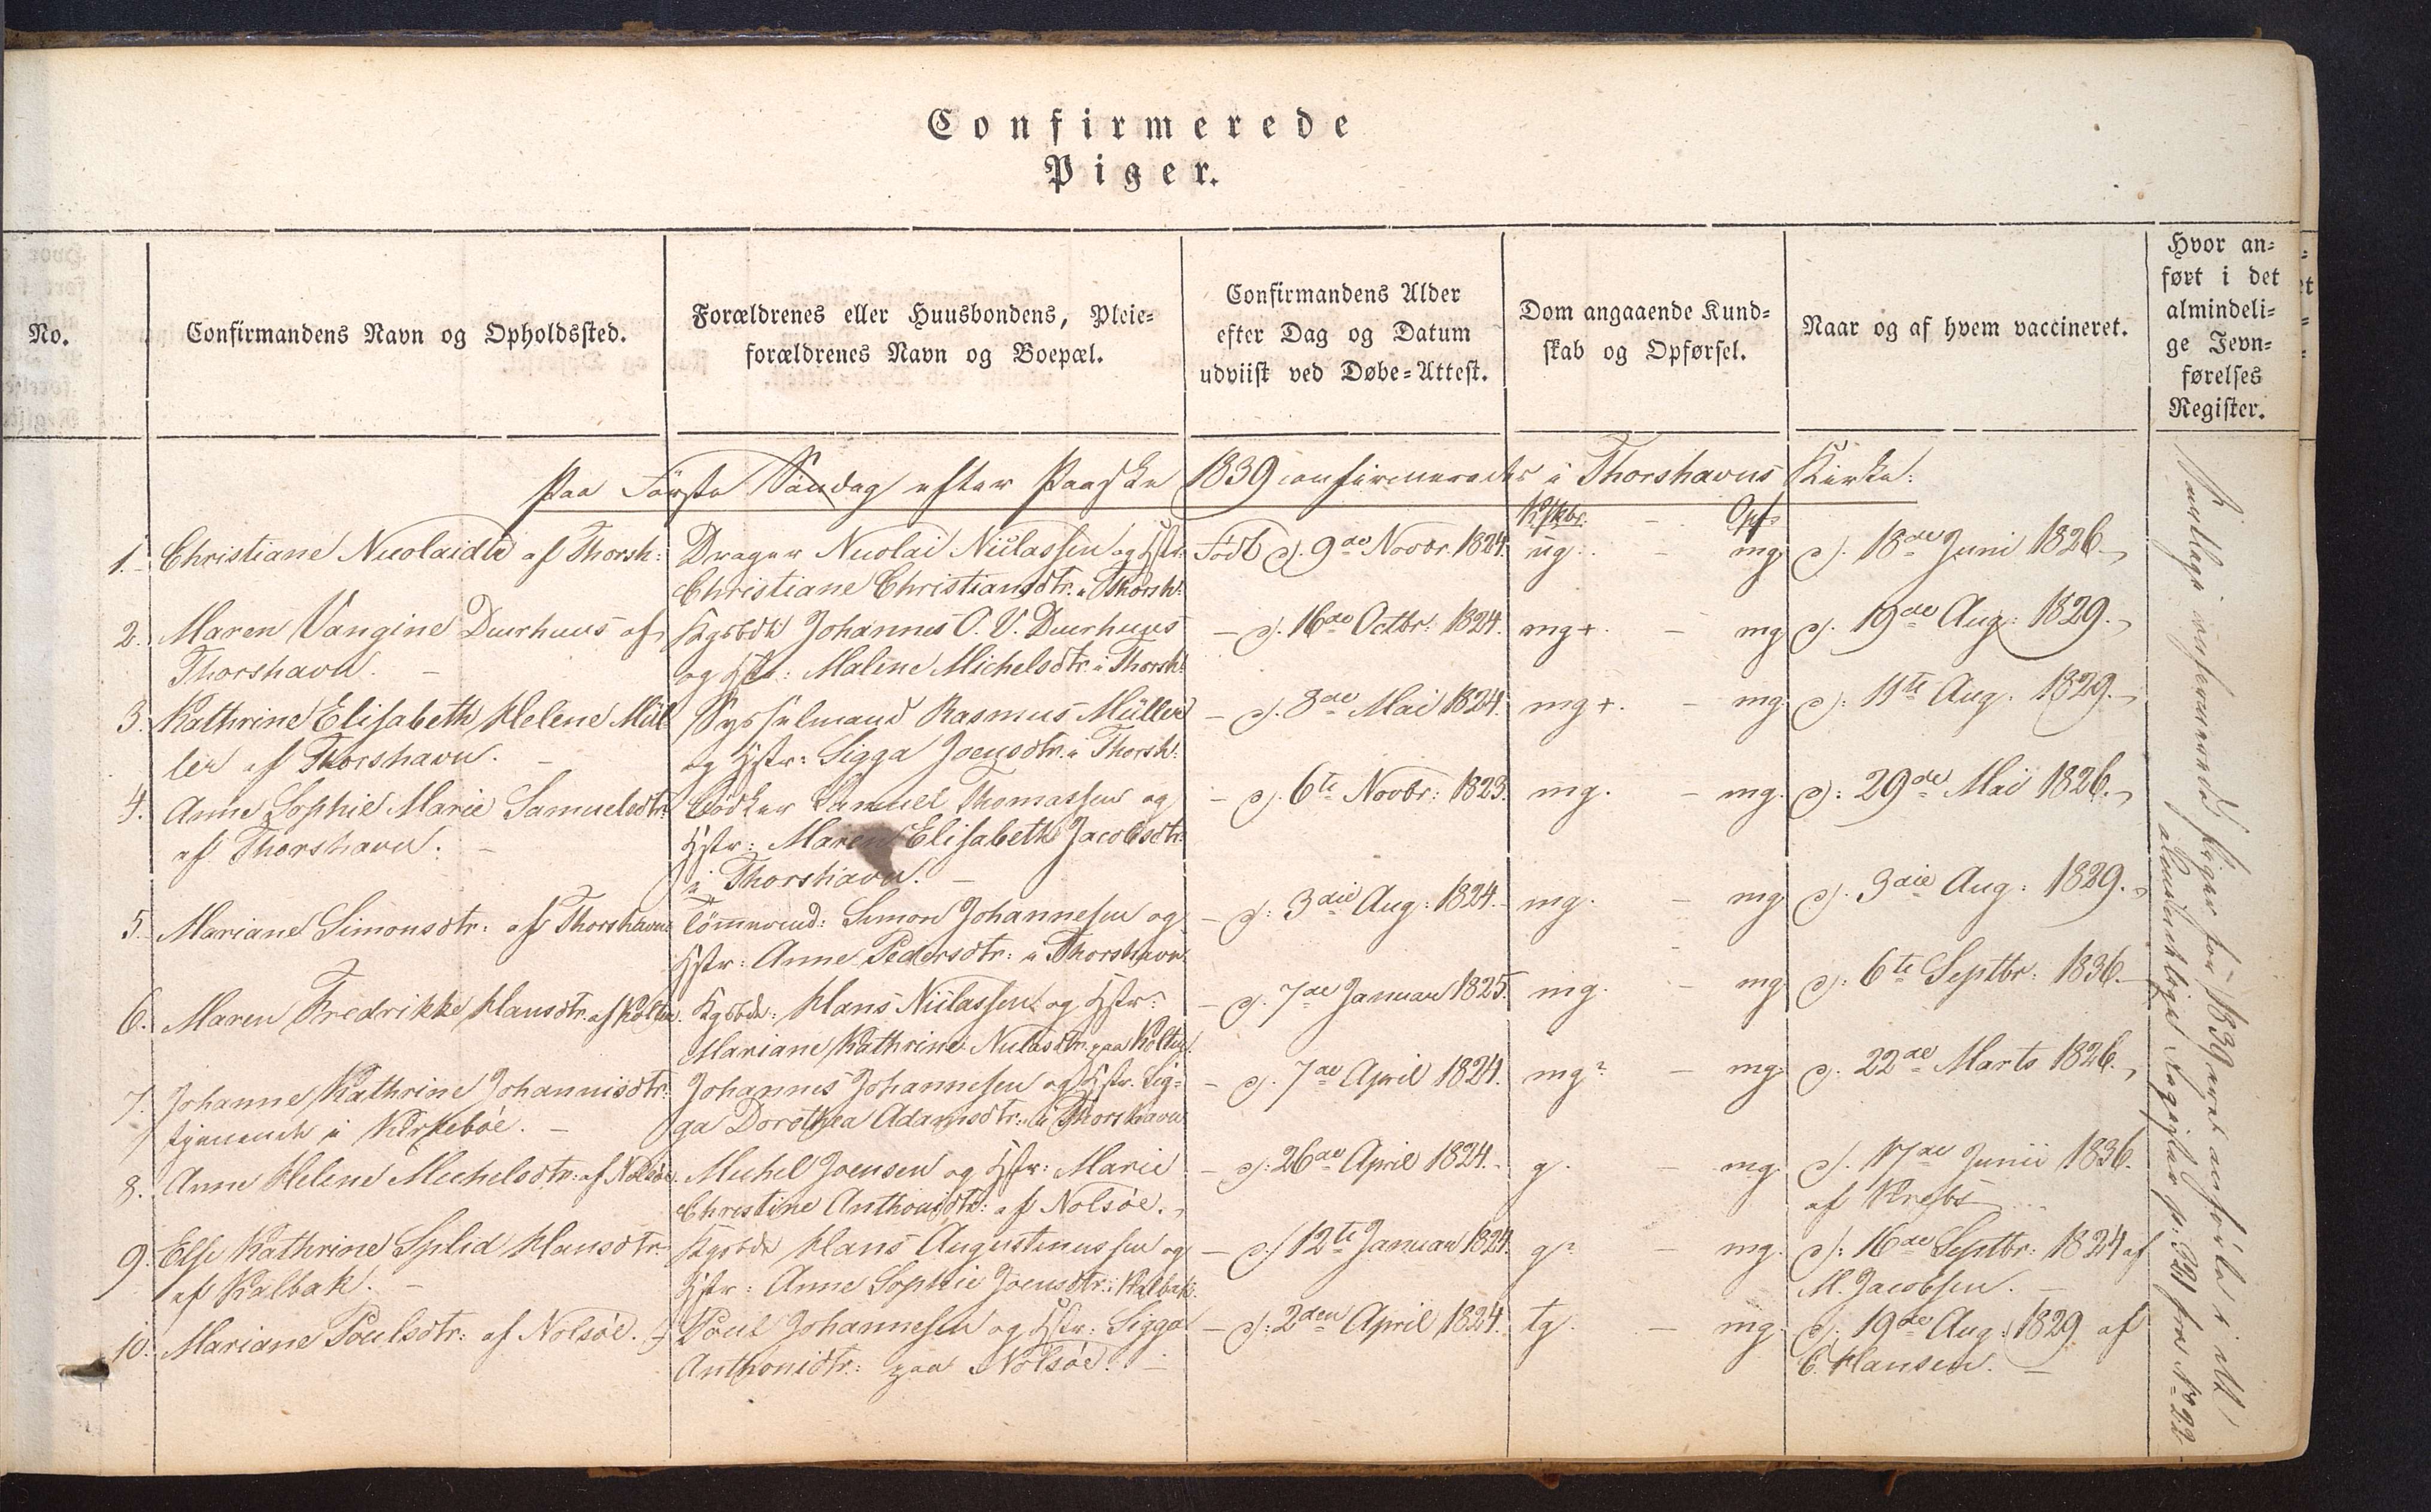 Confirmerede
Piger.
No.
Confirmandens Navn og Opholdssted.
Forældrenes eller Huusbondens, Pleie-
forældrenes Navn og Boepæl.
Confirmandens Alder
efter Dag og Datum
udviist ved Døbe-Attest.
Dom angaaende Kund-
skab og Opførsel.
Naar og af hvem vaccineret.
Hvor an-
ført i det
almindeli-
ge Jevn-
førelses
Register.
Paa Første Søndag efter Paaske 1839 confirmeredes i Thorshavns Kirke:
Kskbr. - Opf.
1. Christiane Nicolaidtr af Thorsh:
Drager Nicolai Niclassen og Hstr:
Christiane Christiansdtr. i Thorsh:
Født d. 9de Novbr. 1824.
ug. - mg
d. 18de Juni 1826.
2. Maren Vangine Duurhuus af
Thorshavn. -
Kgsbde Johannes O. V. Duurhuus
og Hstr: Malene Michelsdtr i Thorsh:
- d. 16de Octbr: 1824.
mg+. - mg
d. 19de Aug: 1829.
3. Kathrine Elisabeth Helene Mül
ler af Thorshavn. -
Sysselmand Rasmus Müller
og Hstr: Sigga Joensdtr. i Thorsh:
- d. 8de Mai 1824.
mg+. - mg.
d: 11te Aug. 1829.
4. Anne Sophie Marie Samuelsdtr:
af Thorshavn. -
Bødker Samuel Thomassen og
Hstr: Maren Elisabeth Jacobsdtr:
i Thorshavn. -
- d. 6te Novbr: 1823.
mg. - mg.
d: 29de Mai 1826.
5. Mariane Simonsdtr: af Thorshavn
Tömmermd: Simon Johannesen og
Hstr: Anne Pedersdtr: i Thorshavn.
- d: 3die Aug: 1824.
mg. - mg
d. 3die Aug: 1829.
6. Maren Fredrikke Hansdtr. af Kolter.
Kgsbde: Hans Niclassen og Hstr:
Mariane Kathrine Niclasdtr. paa Kolter.
- d. 7de Januar 1825.
mg. - mg
d: 6te Septbr: 1836.
7. Johanne Kathrine Johannisdtr:
tjenende i Kirkebøe. -
Johannes Johannesen og Hstr. Sig-
ga Dorothea Adamsdtr: i Thorshavn
- d. 7de April 1824.
mg? - mg.
d. 22de Marts 1826.
8. Anne Helene Michelsdtr: af Nolsøe.
Michel Joensen og Hstr: Marie
Christine Anthonidtr: af Nolsøe.
- d: 26de April 1824.
g. - mg.
d. 17de Junii 1836.
af Krebs
9. Else Kathrine Splid Hansdtr
af Kalbak. -
Kgsbde Hans Augustinussen og
Hstr: Anne Sophie Joensdtr: i Kalbak.
- d. 12te Januar 1824.
g? - mg.
d: 16de Septbr: 1824 af
M. Jacobsen. -
10. Mariane Poulsdtr: af Nolsøe. -
Poul Johannesen og Hstr: Sigga
Anthonidtr: paa Nolsøe. -
- d: 2den April 1824.
tg. - mg.
d. 19de Aug. 1829 af
C. Hansen. -
Samtlige confirmerede Piger for 1839 ere anførte i det
almindelige Register p: 321 fra No 22